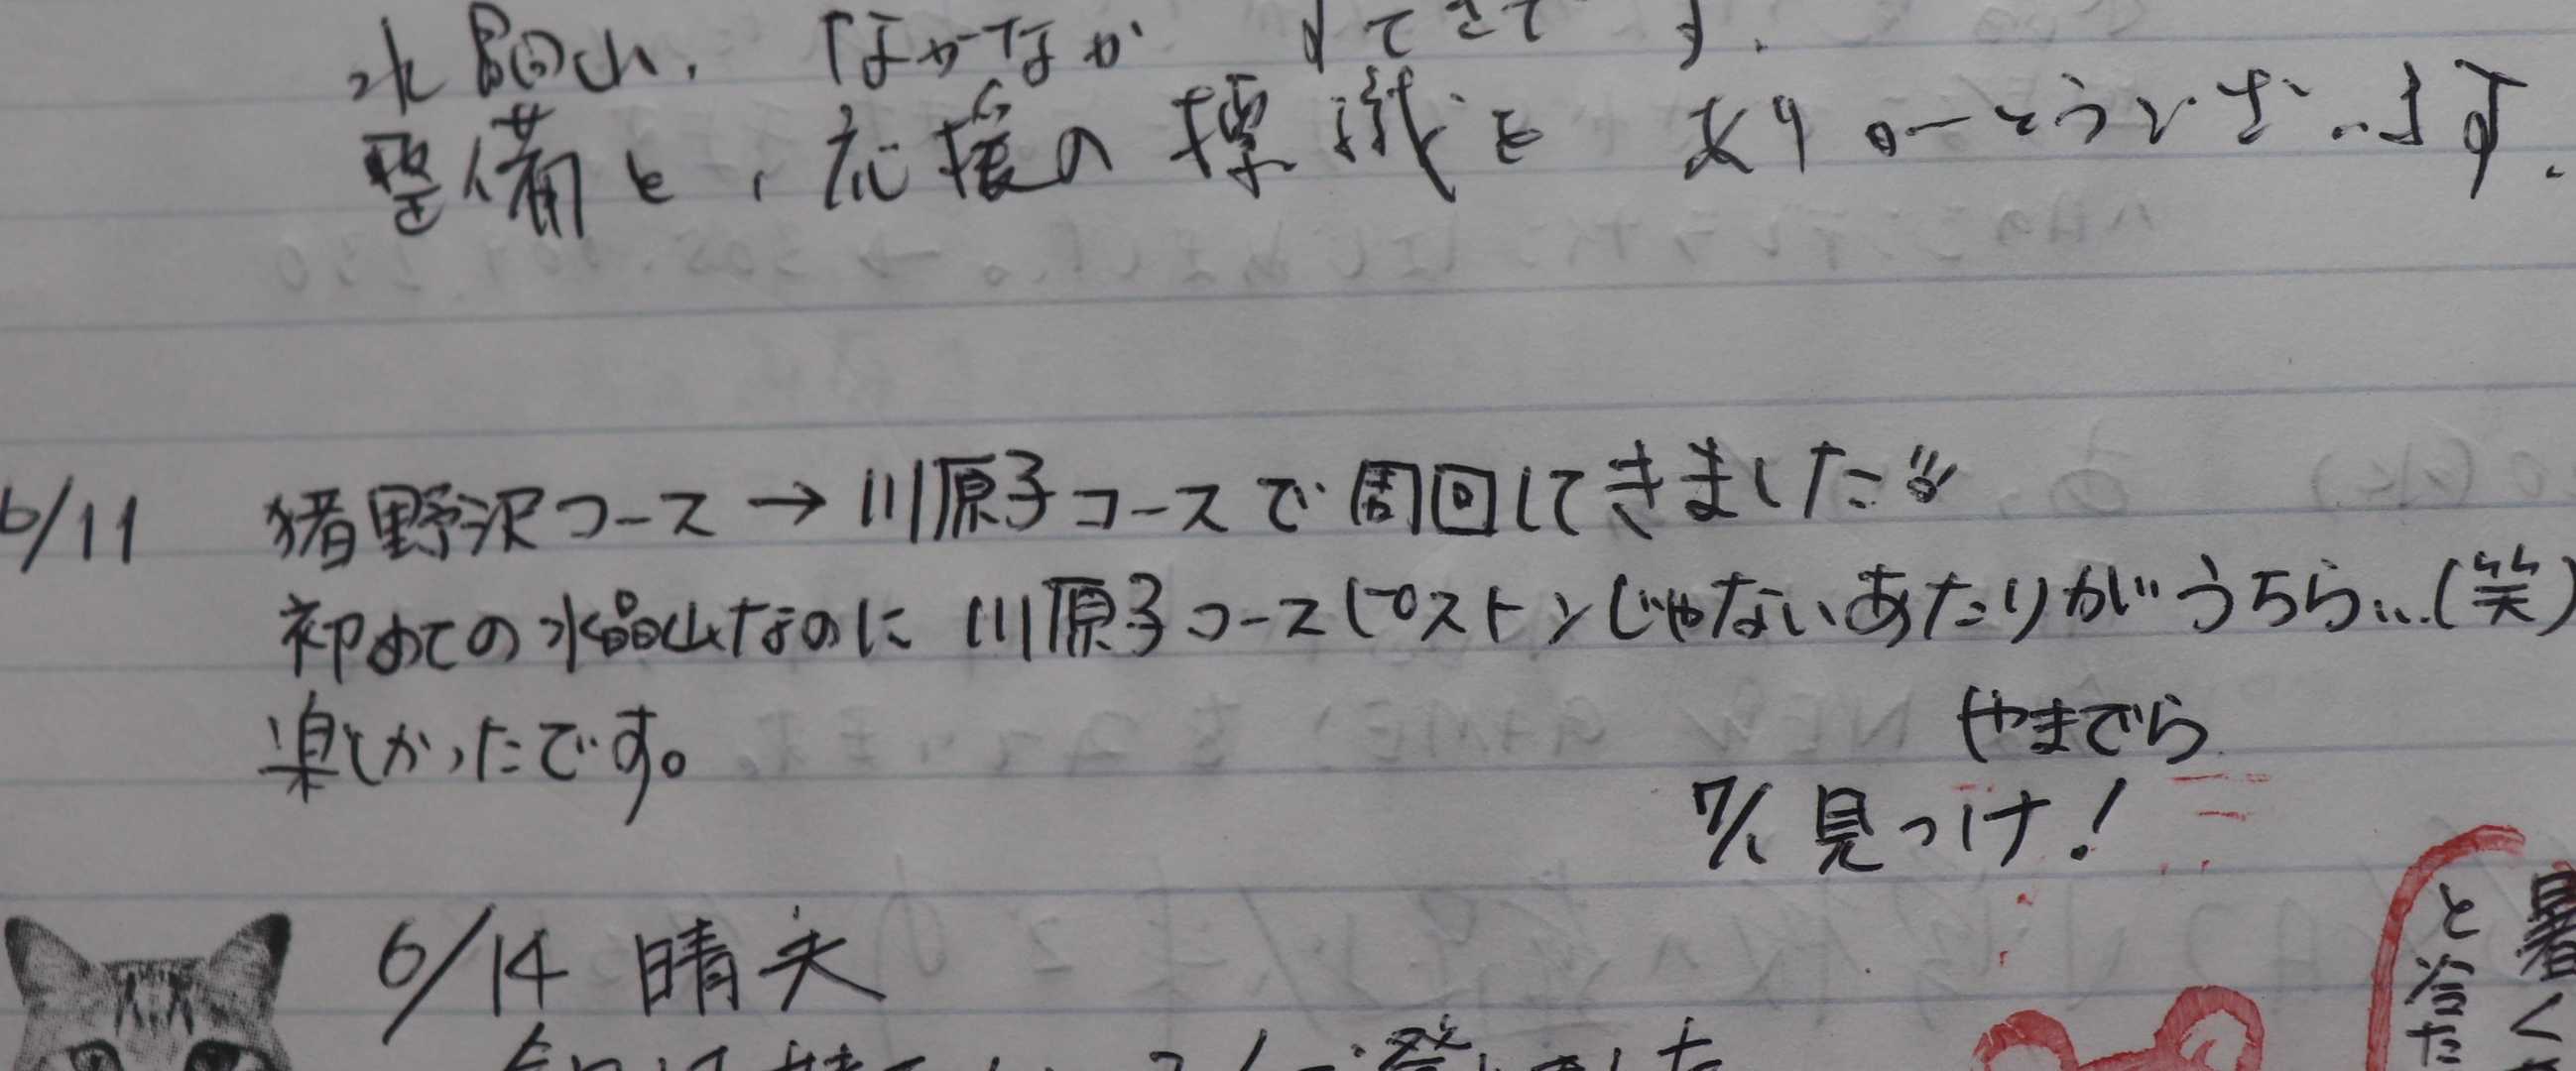 水晶山、なかなか すてきです.
整備と、応援の標識を ありがとうございます.
6/11 猪野沢コース → 川原子コースで周回してきました!!
初めての水晶山なのに 川原子コースピストンじゃないあたりがうちら...(笑)
楽しかったです。
やまでら
7/1 見っけ!
6/14 晴天
登りました
暑く
と冷た